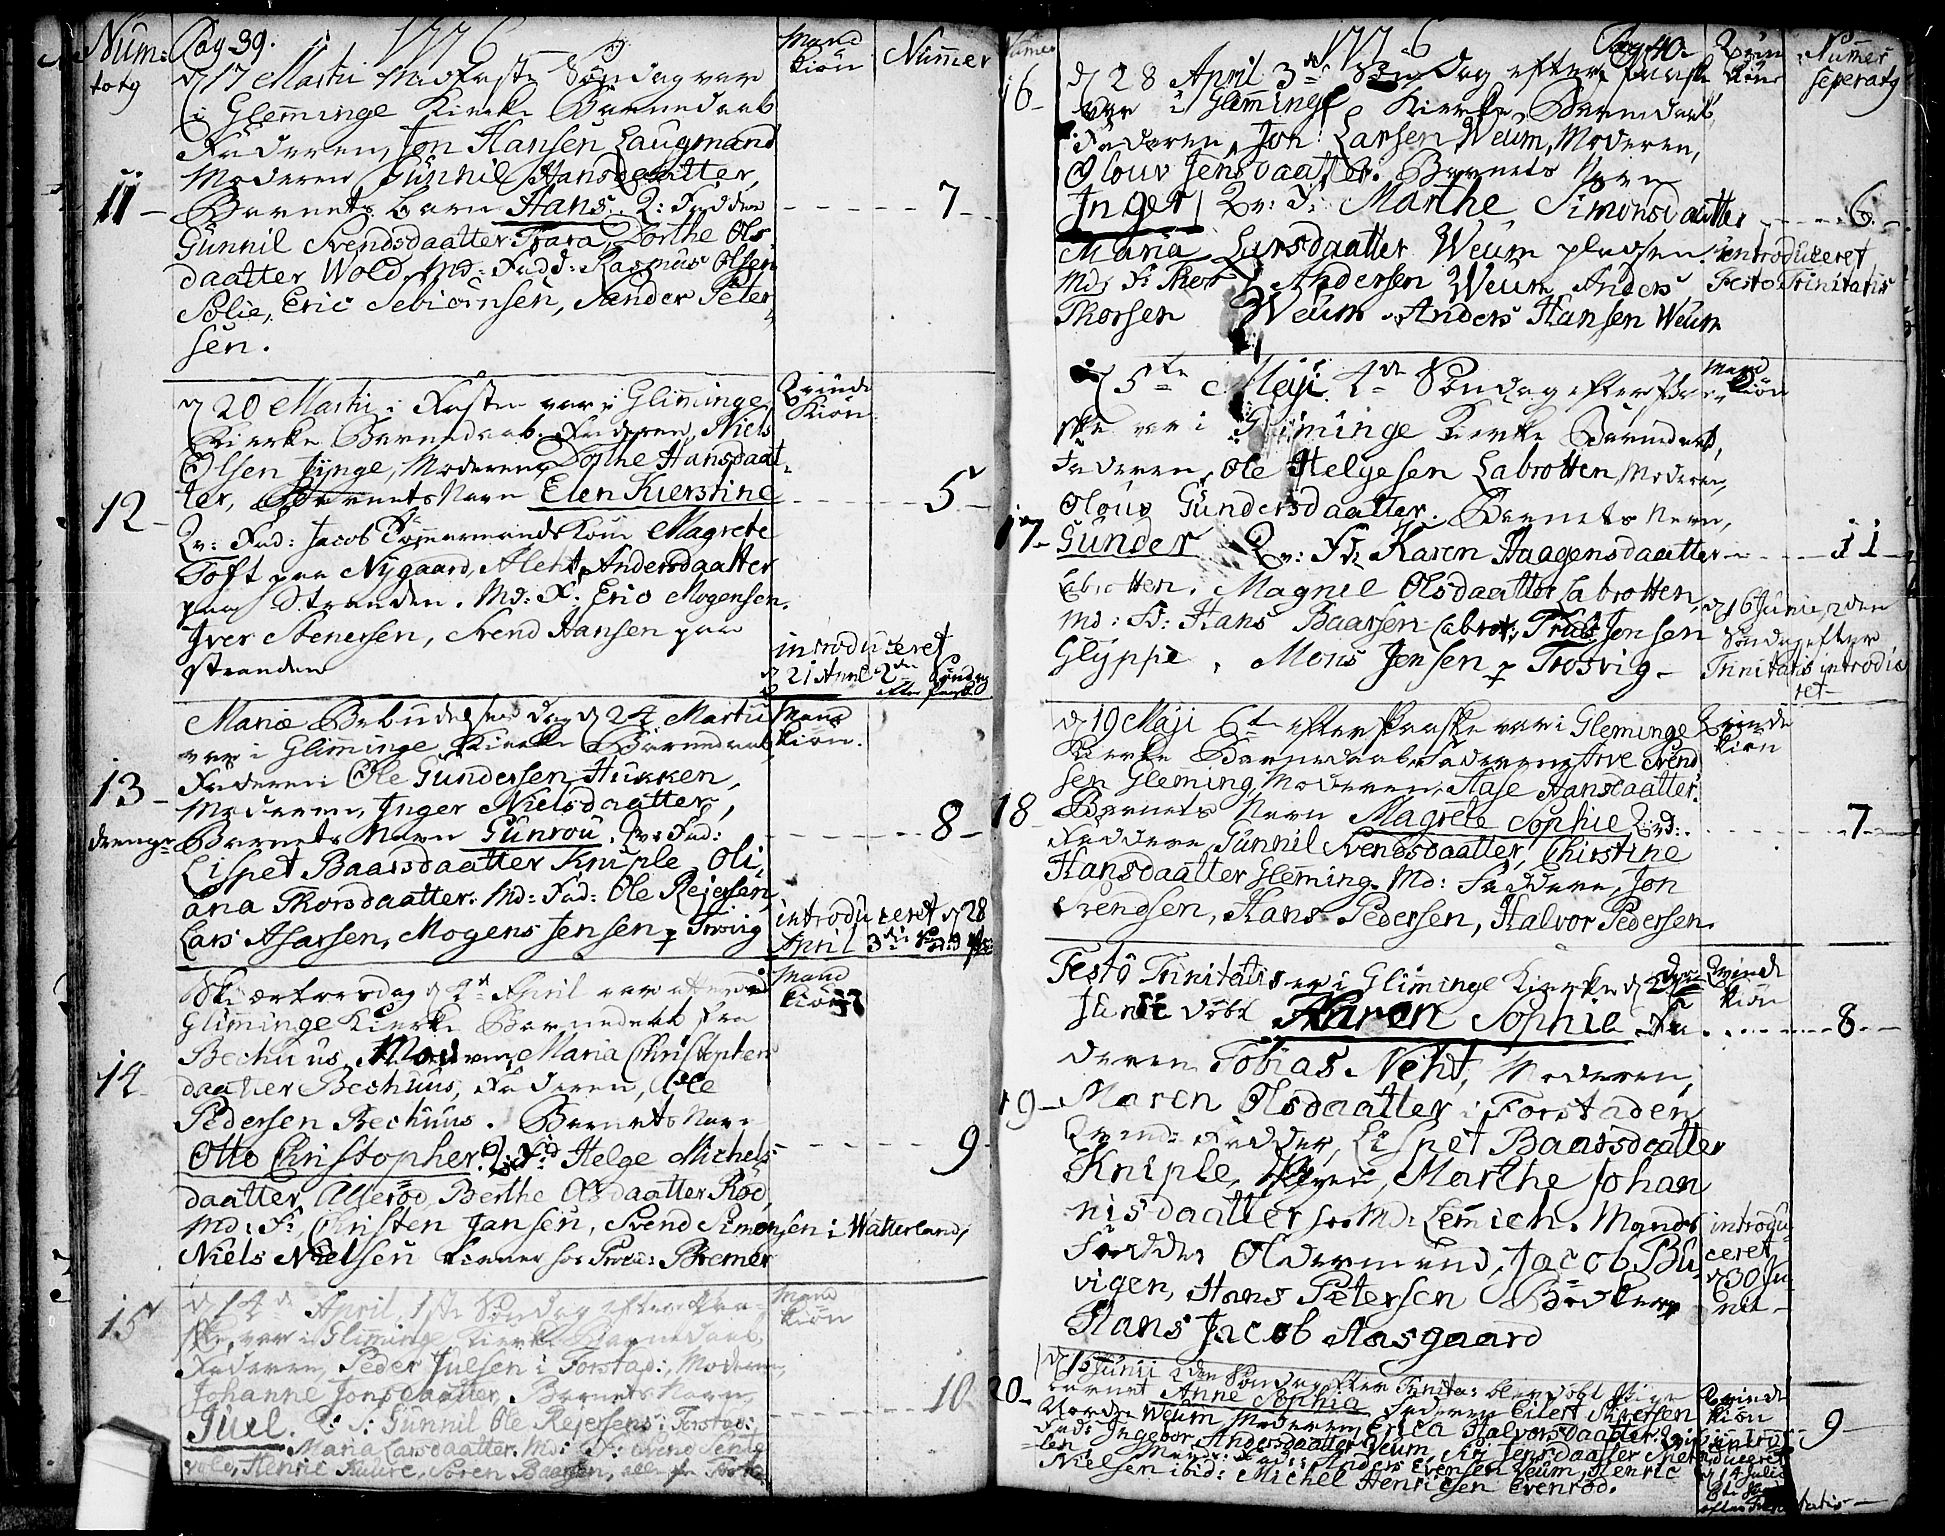 Num:
totq
Pag 39.
1776
Mand
Kiøn
Nummer
d 17 Martii Midfaste Søndag var
i Gleminge Kierke Barnedaab
Faderen, Jon Hansen Laugmand
Moderen Gunnil Hansdaatter,
11 - Barnets Navn Hans. Q: Fadder - - - 7 -
Gunnil Svendsdaatter Trara, Dorthe Ols
daatter Wold. Md: Fadd: Rasmus Olsen
Solie, Eric Sebiørnsen, Sander Peter
sen.
Qvinde
Kiøn
d 20 Martii i Fasten var i Gliminge
Kierke Barnedaab. Faderen, Niels
Olsen Jynge, Moderen, Dorthe Hansdaat-
12 - ter, Barnets Navn Elen Kierstine - - - 5 -
Qv: Fad: Jacob Kone Magrete
Toft paa Nygaard, Alent Andersdaatter
paa Stranden. Md: F: Eric Mogensen.
Iver Stenersen, Svend Hansen paa
stranden
introduceret
d 21 April 2den Søndag
efter Paaske
Mariæ Bebudelses dag d 24 Martii
Mand
Kiøn.
var i Gliminge Kierke Barnedaab
13 - Faderen Ole Gundersen Hukken,
Moderen, Inger Nielsdaatter,
drenge Barnets Navn Gunrou. Qv: Fad: - - - 8 -
Lispet Baarsdaatter Kniple, Oli,
ana Thorsdaatter. Md: Fad: Ole Rejersen
Lars Asarsen, Mogens Jensen Trosvig
introduceret d 28
April 3die
Skiærtorsdag d 4de April var atter
Mand
Kiøn
Gliminge Kierke Barnedaab fra
Bechuus, Moderen, Maria Christophers
14 - daatter Bechuus, Faderen, Ole
Pedersen Bechuus. Barnets Navn
Otto Christopher. Q: Fd: Helge Michels- - - - 9
daatter Allerød, Berthe Olsdaatter Rød,
Md: F: Christen Jansen, Svend Simensen i Watterland,
Niels Nielsen tiener hos Bremer
15
d 14de April 1ste Søndag efter Paa-
Mand
Kiøn
ske, var i Gliminge Kierke Barnedaab,
Faderen, Peder Juelsen i Forstad:, Moderen,
Johanne Jonsdaatter. Barnets Navn,
Juel. Q: F: Gunnil Ole Rejersens i Forstad: - - - 10
Maria Larsdaatter. Md: F: Svend
Henric Søren Baarsen, alle
Numer
1776
Pag 40.
Qvin
Kiøn
Numer
seperatq
16 - d 28 April 3de Søndag efter Paaske
var i Gleminge Kierke Barnedaab,
Faderen, Jon Larsen Weum, Moderen,
Olouv Jensdaatter. Barnets Navn
Inger Qv: F: Marthe Simonsdaatter - - - 6 -
Maria Larsdaatter Weum pladsen.
Md: F: Thor Andersen Weum, Anders
Thorsen Weum. Anders Hansen Weum
introduceret
Festo Trinitatis
d 5te Maji 4de Søndag efter Paa-
Mand
Kiøn
ske var i Gliminge Kierke Barnedaab,
Faderen, Ole Helgesen Labrotten, Moderen,
Olouv Gundersdaatter. Barnets Navn,
17 - Gunder Qv: F: Karen Haagensdaatter - - - 11 -
Labrotten. Magnil Olsdaatter Labrotten,
Md: Fd: Hans Baarsen Labrot: Truls Jonsen
Glyppe, Mons Jensen Trosvig -
d 16 Junii, 2den
Søndag efter
Trinitatis introdu
ret -
d 19 Maji 6te efter Paaske var i Gleminge
Qvinde
Kiøn
Kierke Barnedaab Faderen, Arve Svend
sen Gleming, Moderen, Aase Hansdaatter.
18 - Barnets Navn Magrete Sophie Qvd: - - - 7 -
Faddere Gunnil Svendsdaatter, Chirstine
Hansdaatter Gleming. Md: Faddere, Jon
Svendsen, Hans Pedersen, Halvor Pedersen.
Festô Trinitatis var i Gliminge Kierke d 2den
Qvinde
Kiøn
Junii døbt Karen Sophie Fa - - - 8 -
deren Tobias Neht, Moderen,
19 - Maren Olsdaatter i Forstaden
Qvind: Fadder, Lispet Baarsdaatter
Kniple, Marthe Johan
nisdaatter hos Md: Lemich. Mands
Fadder Oldermand, Jacob Bu
vigen, Hans Petersen Bødker
Hans Jacob Aasgaard
introdu-
ceret,
d 30 Ju-
nii -
d 16 Junii 2den Søndag efter Trinita: blev døbt
20 - barnet Anne Sophia Faderen Eilert Siversen
Qvinde
Kiøn
Weum, Moderen Erica Halvorsdaatter. - 9 -
Fad: Ingebor Andersdaatter Weum, Siri Jensdaatter
Anders Evensen Weum, Henric
Nielsen ibid: Michel Henricsen Evenrød.
introduceret
d 14 Julii
6te
efter Trinitatis -